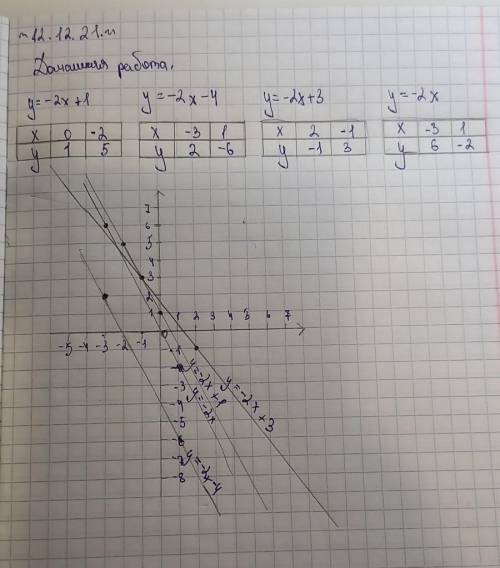 12.12.21.
Домашняя работа.
y=-2x+1 y=-2x-4 y=-2x+3 y=-2x
x 0 -2 x -3 1 x 2 -1 x -3 1
y 1 5 y 2 -6 y -1 3 y 6 -2
7
6
5
4
3
2
1 1 2 3 4 5 6 7
-5 -4 -3 -2 -1 0
-1
-3
-4
-5
-6
-7
-8
y=-2x+1
y=-2x
y=-2x+3
y=-2x-4